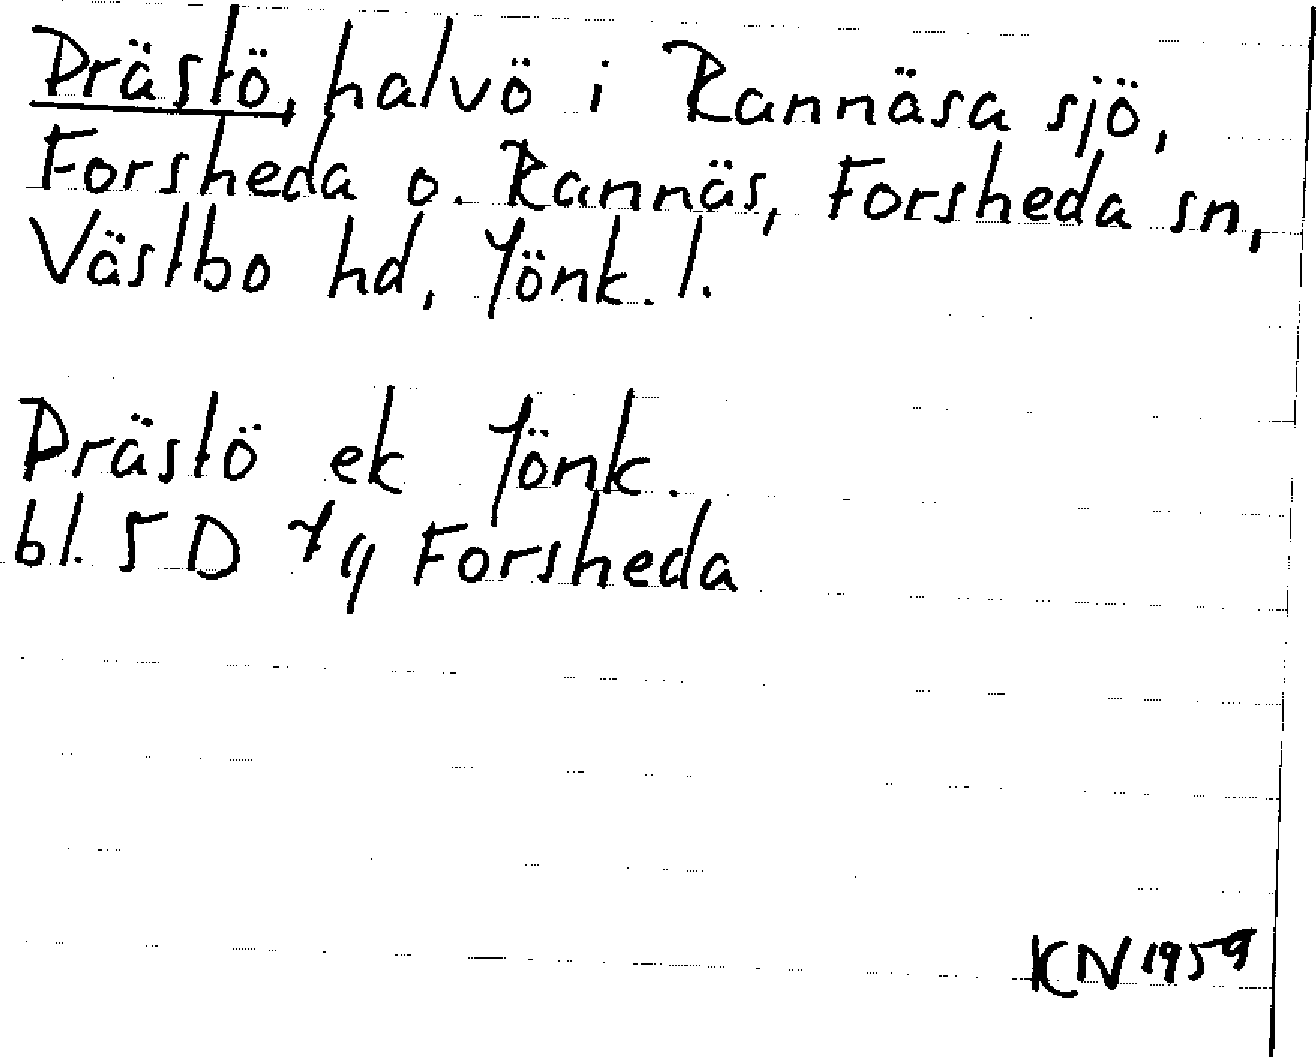 Prästö, halvö i Rannäsa sjö,
Forsheda o. Rannäs, Forsheda sn,
Västbo hd, Jönk. l.
Prästö ek Jönk.
bl. 5 D Forsheda
KN 1959